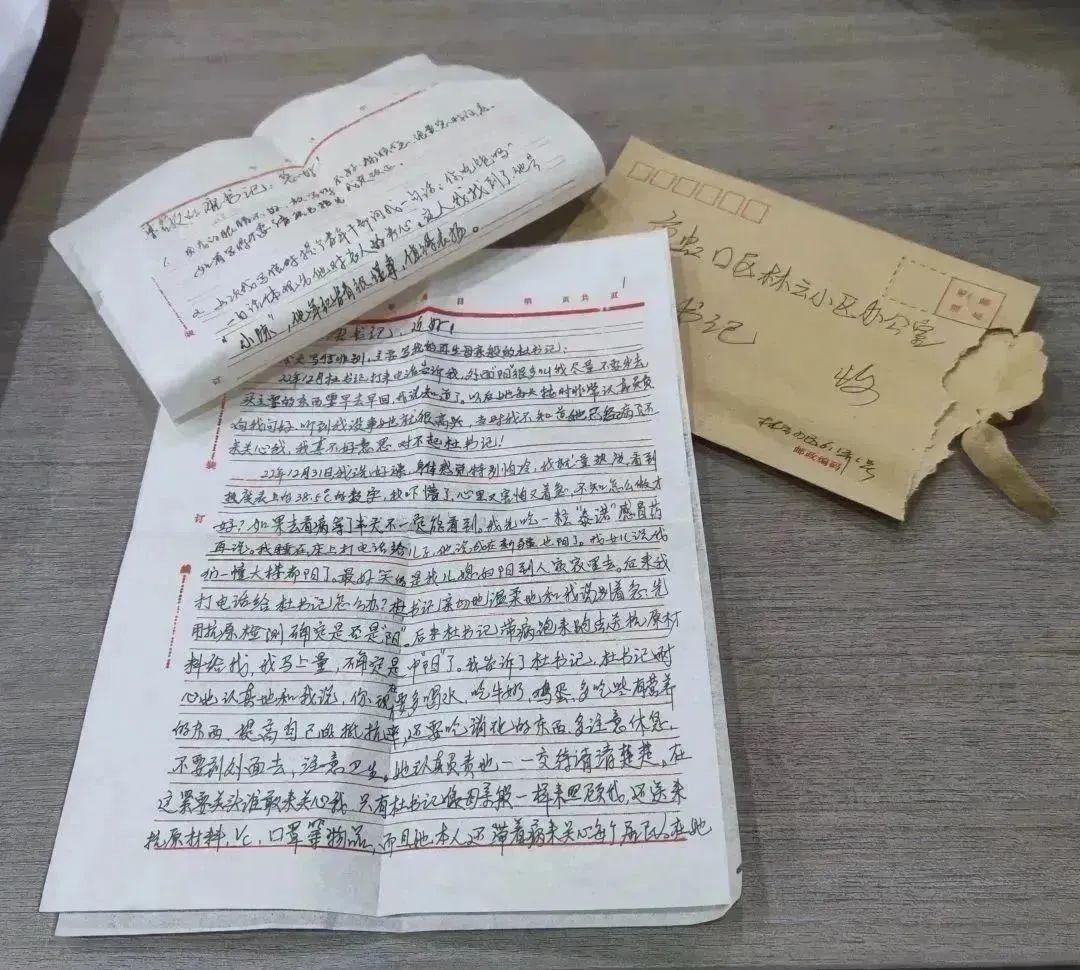 书记、您好!
上次我写信时提
一句话体现
"小陈",
值得表扬。
虹口区林云小区办公室
书记
收
邮政编码
1
书记、近好!
今天写信
主要写我的再生母亲般的杜书记:
22年12月杜书记打来电话告诉我,外面"阳"很多叫我尽量不要出去
买主要的东西要早去早回,我说知道了。以后她每天按时非常认真负责
向我问好,听到我没事她就很高兴,当时我不知道她已经病了还
来关心我,我真不好意思,对不起杜书记!
22年12月31日我洗好澡,身体感觉特别怕冷,我就量热度,看到
热度表上有38.5℃的数字,我吓懵了,心里又害怕又着急,不知怎么做才
好?如果去看病等了半天不一定能看到,我先吃一粒"泰诺"感冒药
再说。我睡在床上打电话给儿子,他说我在新疆也阳了。我女儿说我
们一幢大楼都阳了。最好笑的是我儿媳的阳到人家家里去。后来我
打电话给杜书记怎么办?杜书记亲切地温柔地和我说别着急先
用抗原检测确定是否是"阳"。后来杜书记带病跑来跑去送抗原材
料给我,我马上量,确定是中"阳"了。我告诉了杜书记,杜书记耐
心地认真地和我说,你现在要多喝水,吃牛奶,鸡蛋,多吃些有营养
的东西,提高自己的抵抗率,还要吃消化的东西,多注意休息,
不要到外面去,注意卫生。她认真负责地一一交待清清楚楚。在
这紧要关头谁敢来关心我,只有杜书记像母亲般一样来照顾我,还送来
抗原材料,VC,口罩等物品,而且她本人还带着病来关心每个居民,在她